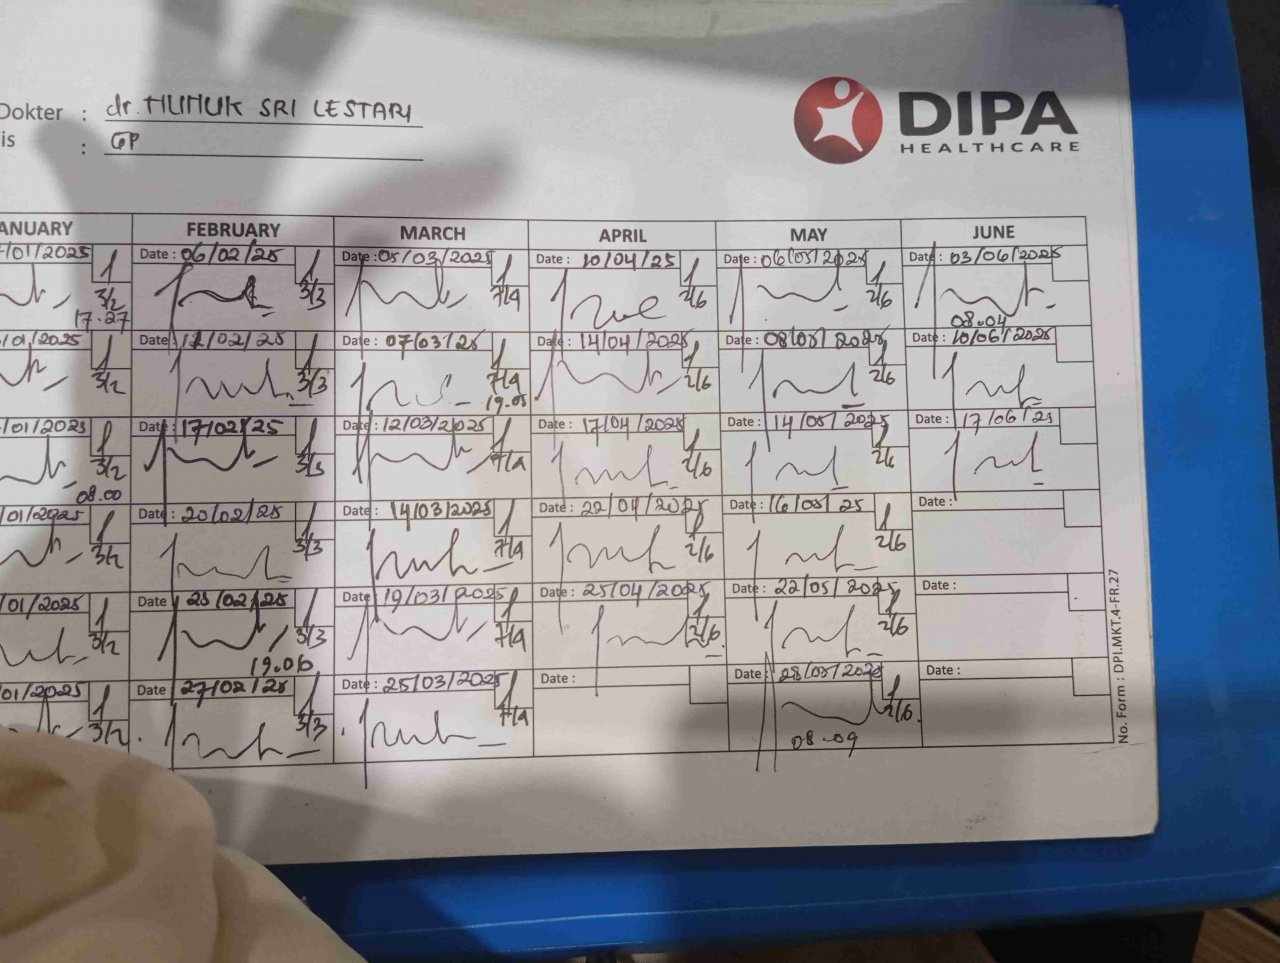 Dokter : dr. NUNUK SRI LESTARI
is : GP
DIPA
HEALTHCARE
ANUARY FEBRUARY MARCH APRIL MAY JUNE
/01/2025 Date : 06/02/25 Date : 05/03/2025 Date : 10/04/25 Date : 06/05/2025 Date : 03/06/2025
3/2 3/3 7/4 2/6 2/6
17.27 08.04
/01/2025 Date : 12/02/25 Date : 07/03/25 Date : 14/04/2025 Date : 08/05/2025 Date : 10/06/2025
3/2 3/3 7/4 2/6 2/6
19.05
/01/2025 Date : 17/02/25 Date : 12/03/2025 Date : 17/04/2025 Date : 14/05/2025 Date : 17/06/25
3/2 3/3 7/4 2/6 2/6
08.00
/01/2025 Date : 20/02/25 Date : 14/03/2025 Date : 22/04/2025 Date : 16/05/25 Date :
3/2 3/3 7/4 2/6 2/6
/01/2025 Date : 25/02/25 Date : 19/03/2025 Date : 25/04/2025 Date : 22/05/2025 Date :
3/2 3/3 7/4 2/6 2/6
19.06
/01/2025 Date : 27/02/25 Date : 25/03/2025 Date : Date : 28/05/2025 Date :
3/2 3/3 7/4 2/6
08.09
No. Form : DPI.MKT.4-FR.27